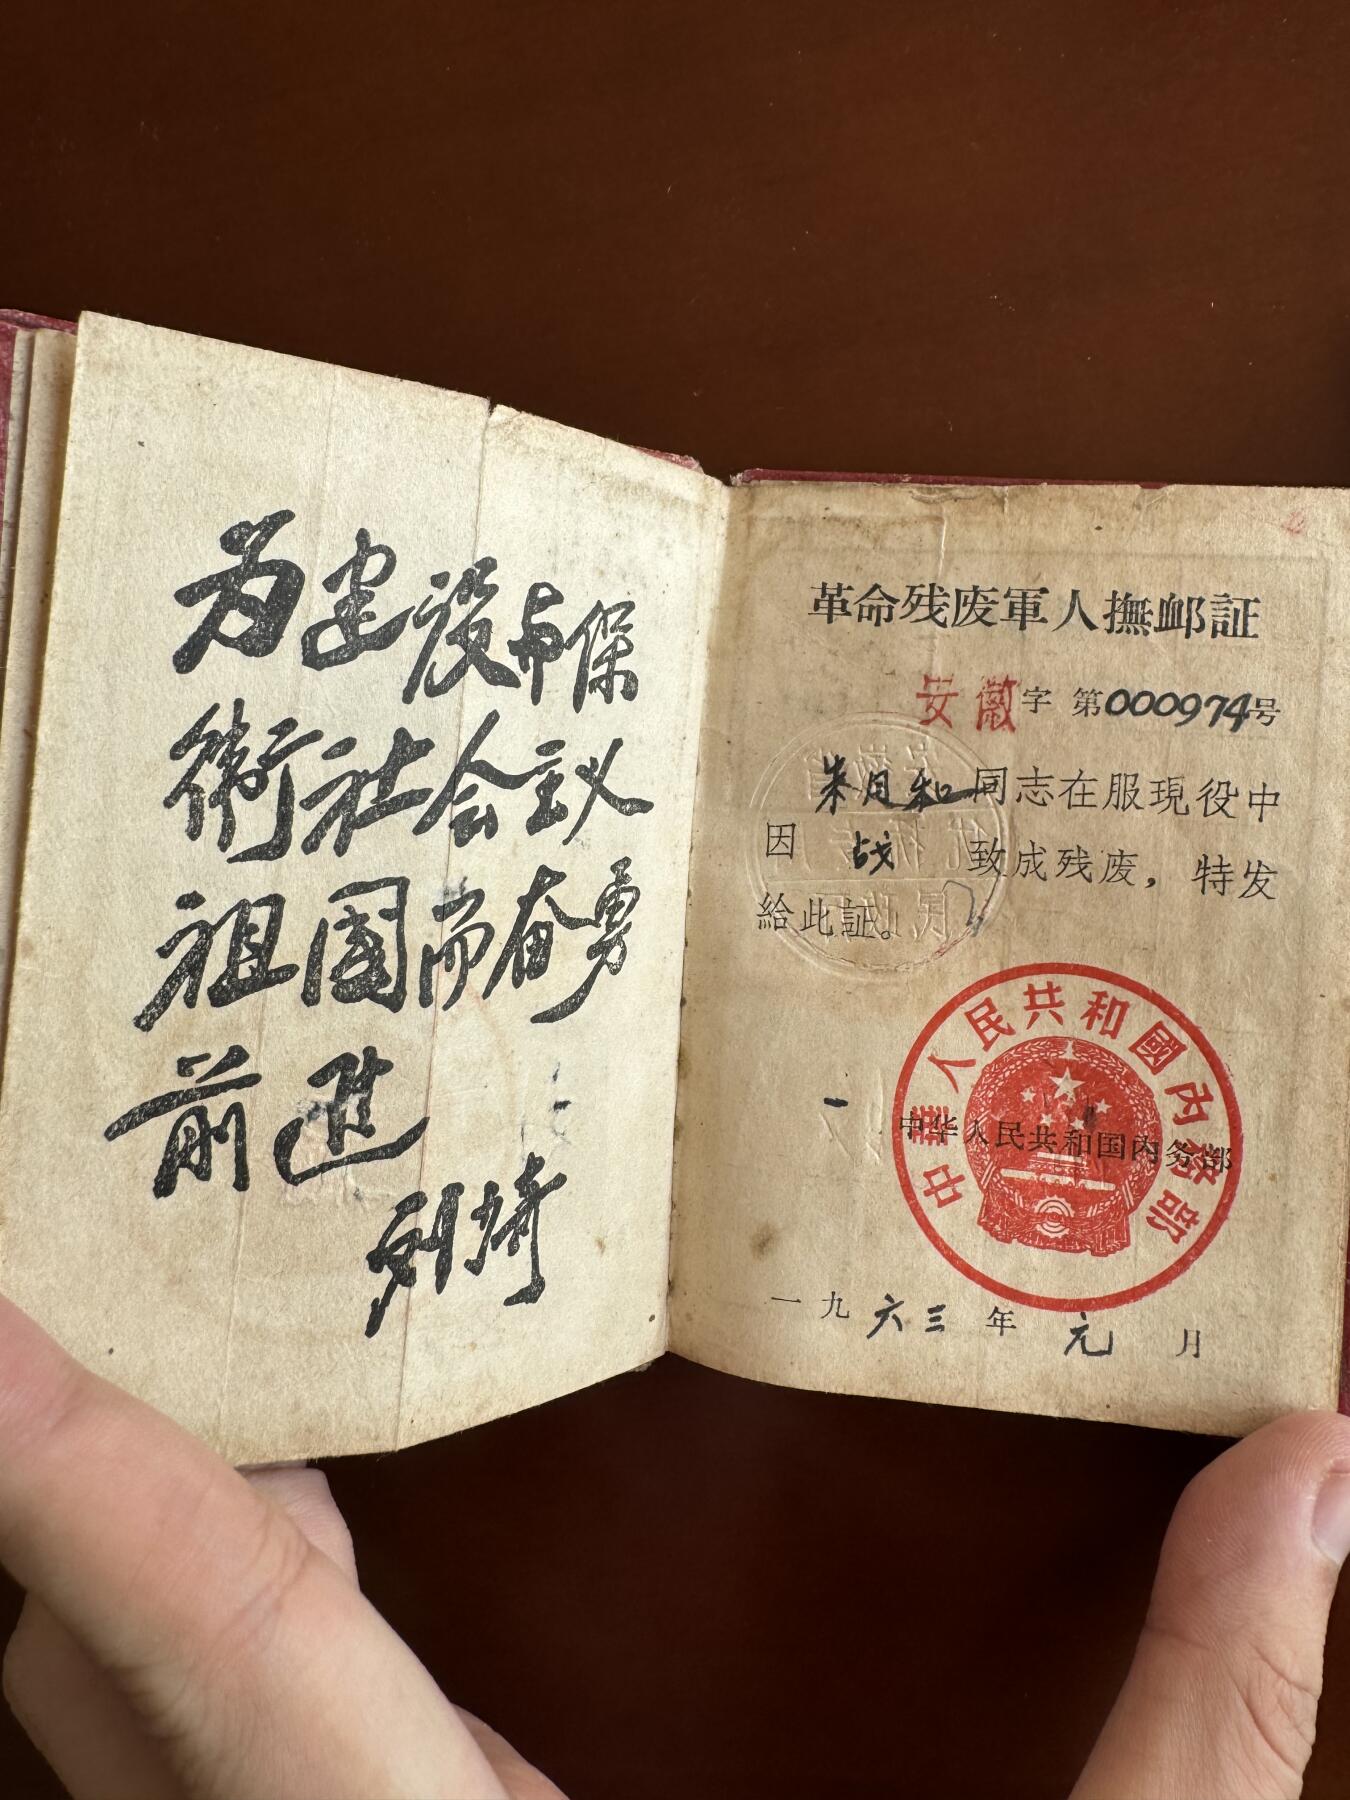 为建设与保
衛社会主义
祖国而奋勇
前进
革命残废軍人撫邮証
安徽字 第000974号
朱月和同志在服現役中
因 战 致成残废，特发
給此証。
中華人民共和國內務部
中华人民共和国内务部
一九六三年元月